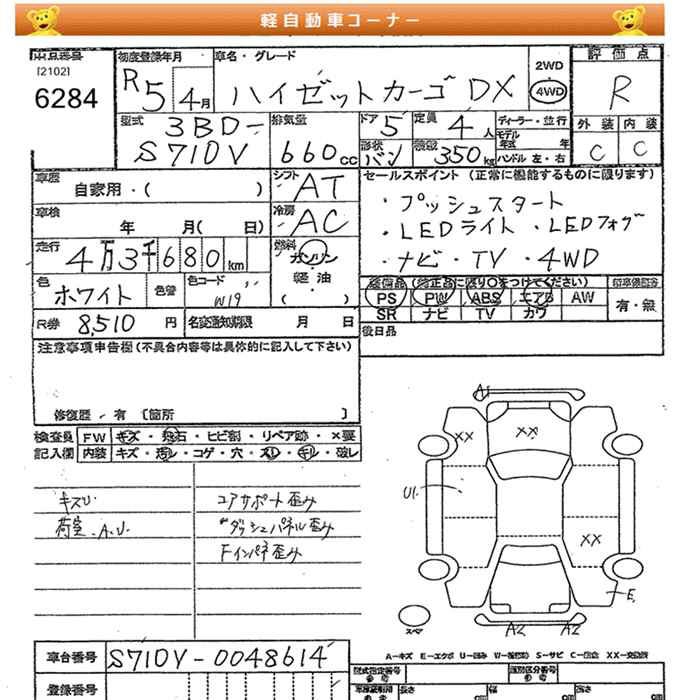 軽自動車コーナー
出品番号 初度登録年月 車名・グレード 2WD 評価点
[2102]
6284 R5 4月 ハイゼットカーゴ DX 4WD R
型式 排気量 ドア 定員 ディーラー・並行 外装 内装
3BD- 5 4人 モデル 年式 年
S710V 660cc 形状 バン 積載 350kg ハンドル 左・右 C C
車歴 シフト セールスポイント (正常に機能するものに限ります)
自家用・( ) AT ・プッシュスタート
車検 冷房 ・LEDライト・LEDフォグ
年 月( 日) AC ・ナビ・TV・4WD
走行 4万3千680km 燃料 ガソリン
軽油
( )
色 ホワイト 色替 色コード W19
装備品 (純正品に限り○をつけてください)
PS PW ABS エアB AW 有・無
SR ナビ TV カワ
R券 8,510円 名変通知期限 月 日 後日品
注意事項申告欄(不具合内容等は具体的に記入して下さい)
修復歴・有 [箇所 ]
検査員 FW キズ・飛石・ヒビ割・リペア跡・×要
記入欄 内装 キズ・汚レ・コゲ・穴・スレ・キレ・破レ
キズU コアサポート歪み
荷室.A.U. ダッシュパネル歪み
Fインパネ歪み
A1
XX XX
U1
XX
E
スペア A2 A2
A-キズ E-エクボ U-凹み W-補修跡 S-サビ C-腐食 XX-交換済
車台番号 S710V-0048614 型式指定番号 類別区分番号
登録番号 長さ 幅 高さ